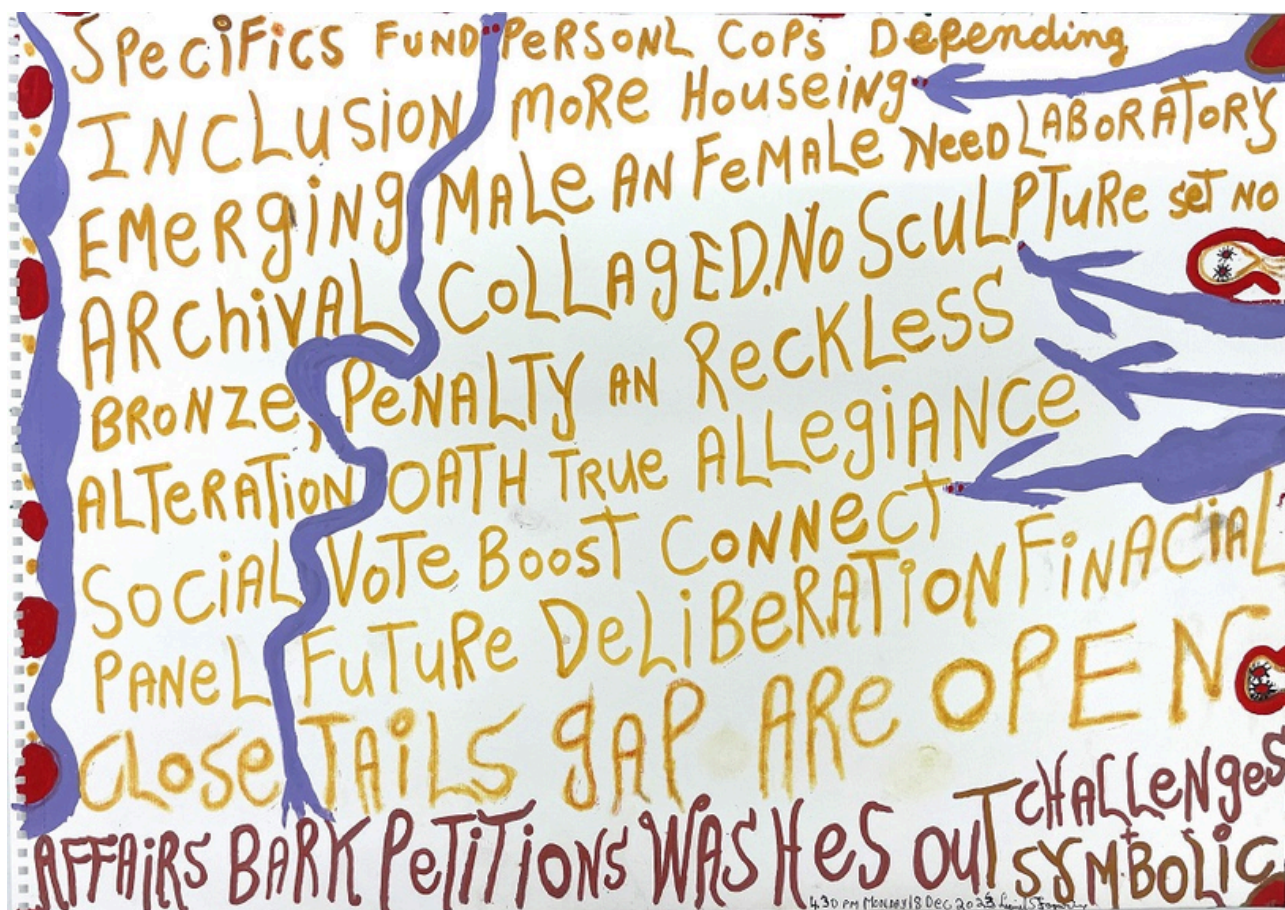 SPeCiFiCS FUND PeRSONL COPS Depending
INCLUSiON MORe HOUSeiNg
EMeRgiNg MALe AN FeMALe NeeD LABORATORY
ARChiVAL COLLAgED. NO SCULPTURe SeT NO
BRONZe, PeNALTY AN ReCKLeSS
ALTeRATiON OATH TRUe ALLegiANCe
SOCiAL VOTe BOOST CONNeCT
PANeL FUTURe DeLiBeRATiON FiNACiAL
CLOSe TAiLS gAP ARe OPEN
AFFAiRS BARK PeTiTiONS WASHeS OUT CHALLeNgeS + SYMBOLiC
4.30 PM MONDAY 18 DEC 2023